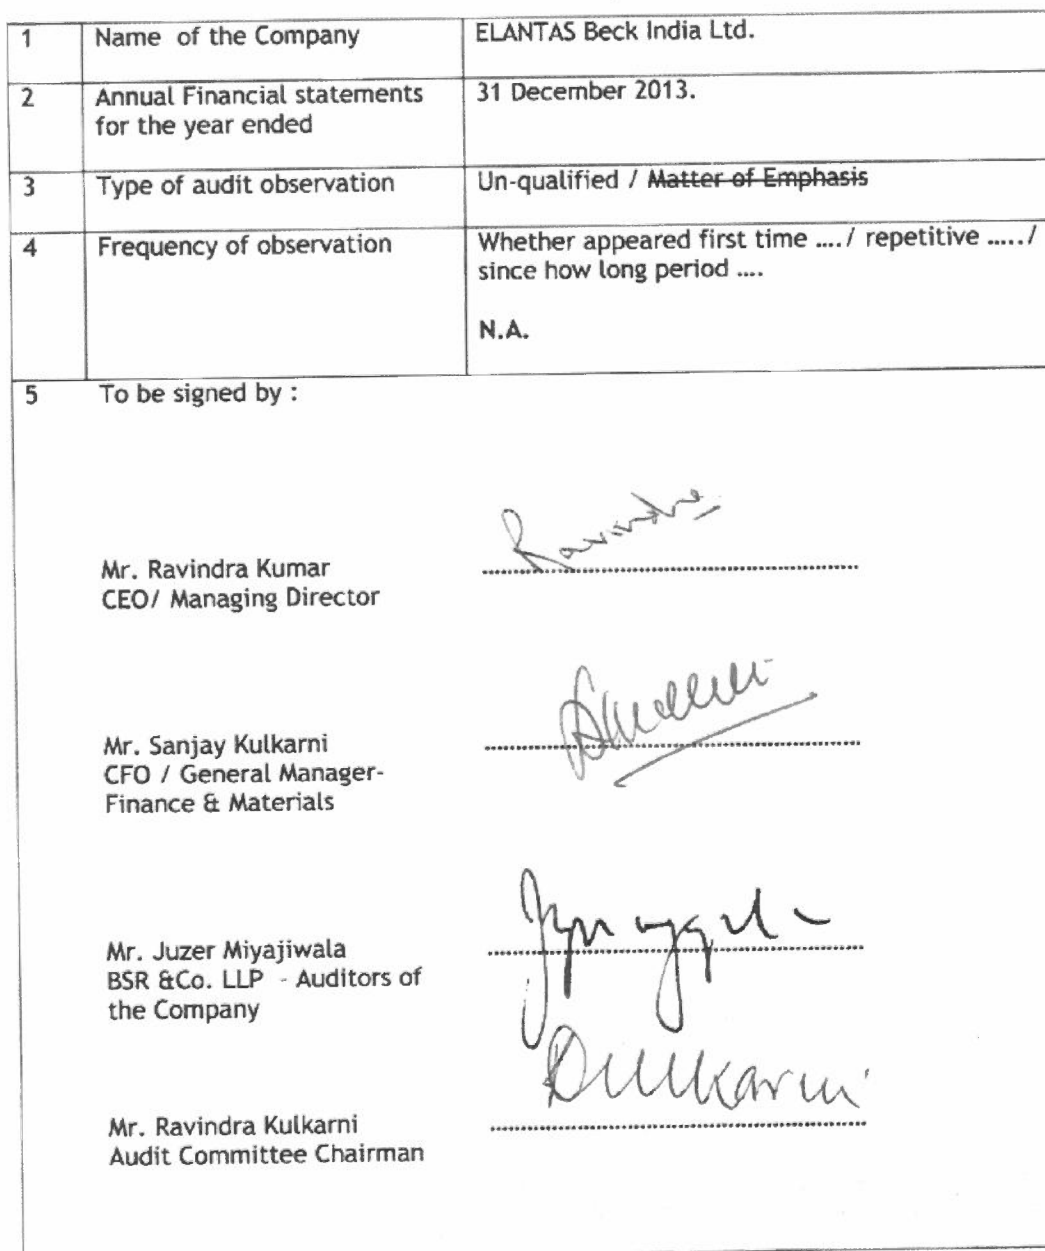 1 Name of the Company ELANTAS Beck India Ltd.
2 Annual Financial statements 31 December 2013.
for the year ended
3 Type of audit observation Un-qualified / Matter of Emphasis
4 Frequency of observation Whether appeared first time ..../ repetitive ...../
since how long period ....
N.A.
5 To be signed by :
Ravindra
Mr. Ravindra Kumar
CEO/ Managing Director
Mr. Sanjay Kulkarni
CFO / General Manager-
Finance & Materials
Mr. Juzer Miyajiwala
BSR &Co. LLP - Auditors of
the Company
Mr. Ravindra Kulkarni
Audit Committee Chairman